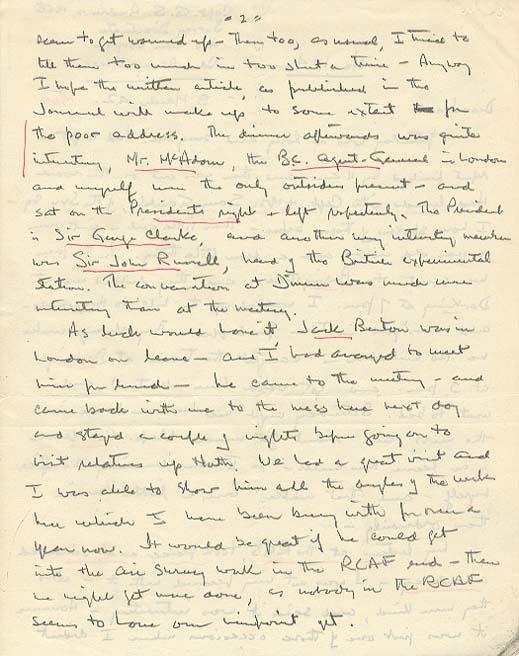 = 2 =
seem to get wound up – Then too, as usual, I tried to
tell them too much in too short a time – Anyway
I hope the written article, as published in the
Journal will make up to some extent for
the poor address. The dinner afterwards was quite
interesting, Mr. McAdam, the B.C. Agent-General in London
and myself were the only outsiders present – and
sat on the Presidents right & left respectively. The President
is Sir George Clarke, and another very interesting member
was Sir John Russell, head of the British experimental
station. The conversation at Dinner was much more
interesting than at the meeting.
As luck would have it Jack Benton was in
London on leave – and I had arranged to meet
him for lunch – he came to the meeting – and
came back with me to the mess here next day
and stayed a couple of nights before going on to
visit relatives up North. We had a great visit and
I was able to show him all the angles of the work
here which I have been busy with for over a
year now. It would be great if he could get
into the air survey work in the RCAF end – then
we might get more done, as nobody in the RCAF
seems to have our viewpoint yet.